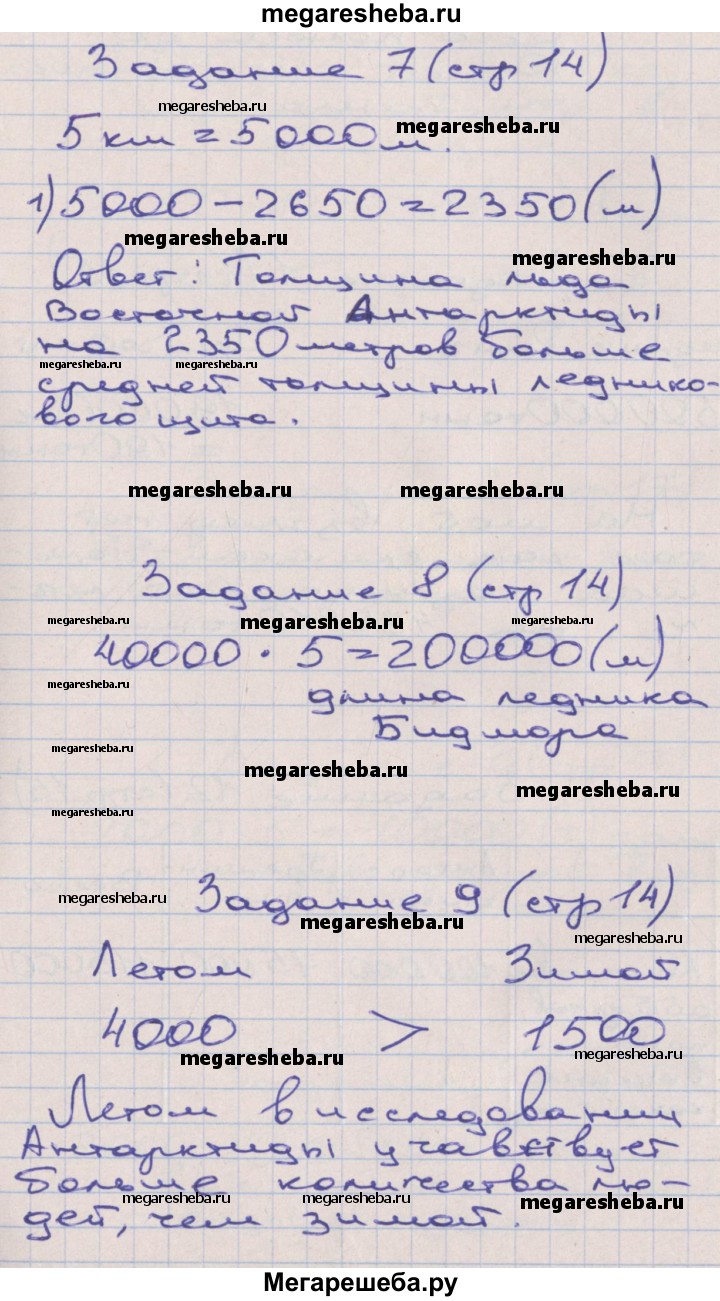 megaresheba.ru
Задание 7 (стр 14)
megaresheba.ru
megaresheba.ru
5 км = 5000 м.
1) 5000 - 2650 = 2350 (м)
megaresheba.ru
megaresheba.ru
Ответ: Толщина льда
Восточной Антарктиды
на 2350 метров больше
megaresheba.ru megaresheba.ru megaresheba.ru
средней толщины леднико-
вого щита.
megaresheba.ru megaresheba.ru
Задание 8 (стр 14)
megaresheba.ru megaresheba.ru megaresheba.ru
40000 · 5 = 200000 (м)
megaresheba.ru
длина ледника
Бидмора
megaresheba.ru
megaresheba.ru
megaresheba.ru
megaresheba.ru
Задание 9 (стр 14)
megaresheba.ru
megaresheba.ru
megaresheba.ru
Летом Зимой
4000 > 1500
megaresheba.ru megaresheba.ru
Летом в исследовании
Антарктиды учавствует
больше количества лю-
megaresheba.ru megaresheba.ru megaresheba.ru
дей, чем зимой.
Мегарешеба.ру